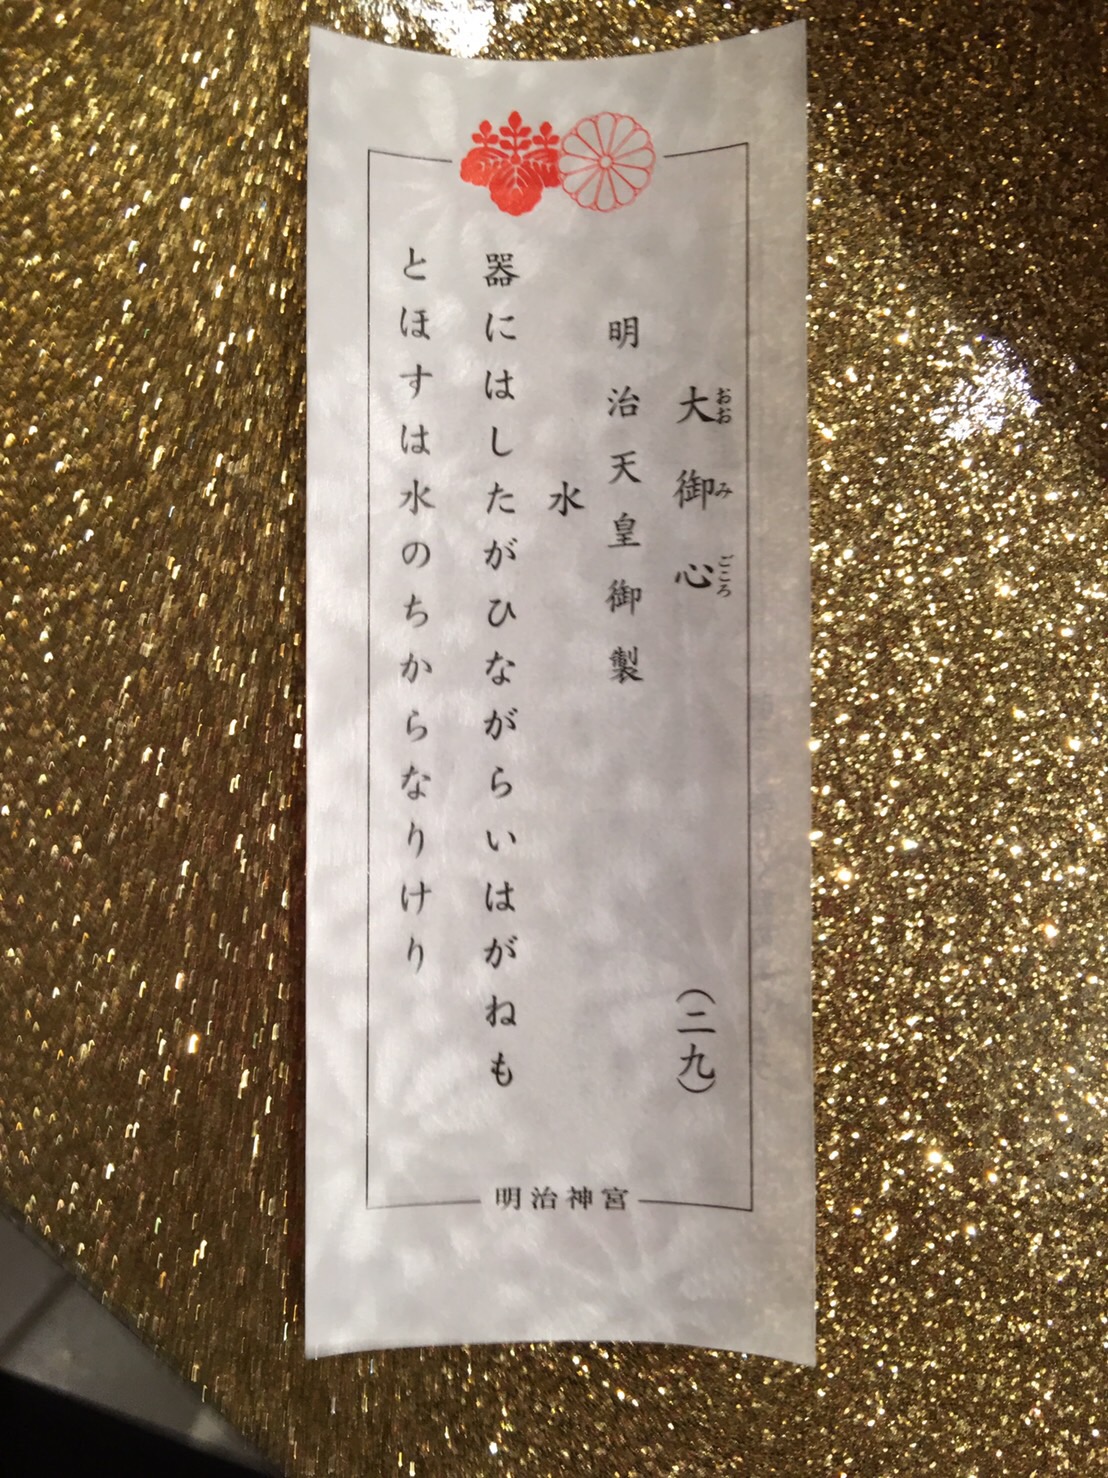 大御心 (二九)
おお み ごころ
明治天皇御製
水
器にはしたがひながらいはがねも
とほすは水のちからなりけり
明治神宮